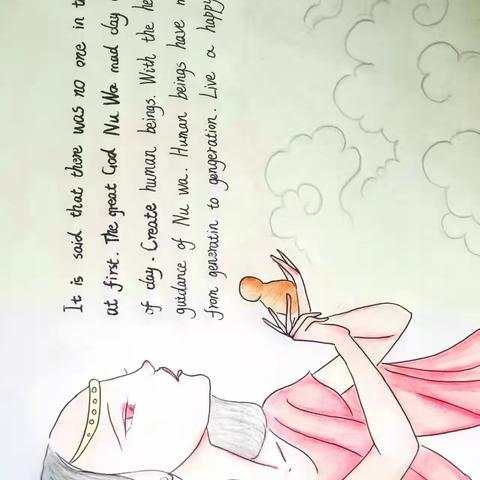 It is said that there was no one in
at first. The great God Nu Wa mad day
of day. Create human beings. With the
guidance of Nu wa. Human beings have
from generatin to gengeration. Live a happy